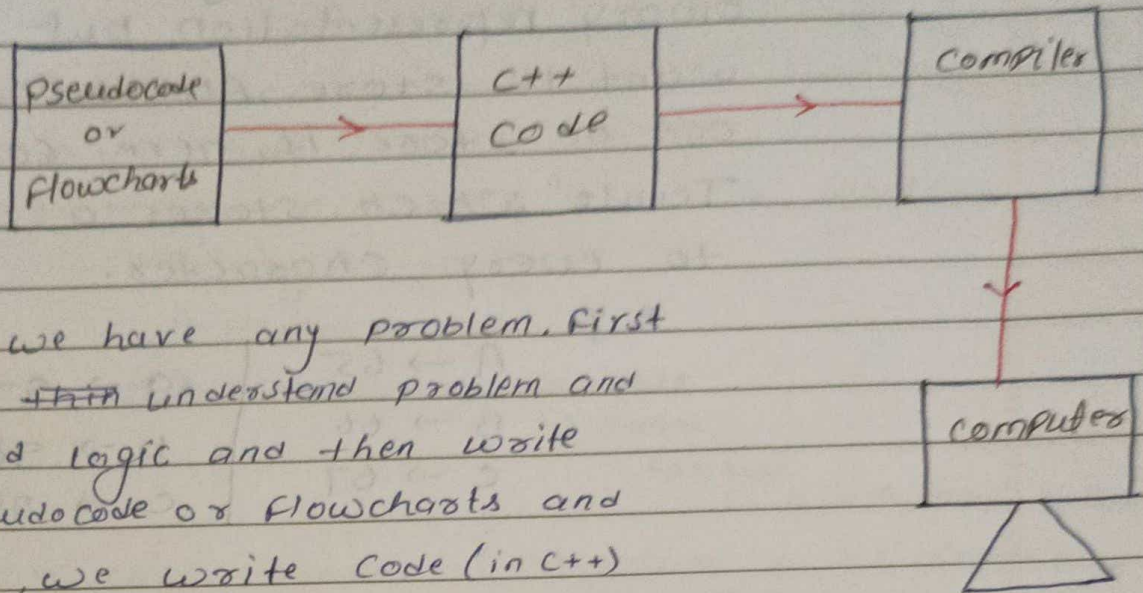 Pseudocode
or
Flowcharts
C++
code
compiler
we have any problem. First
understand problem and
d logic and then write
udocode or flowcharts and
we write code (in C++)
computer